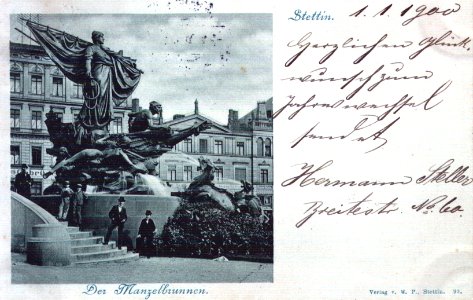 Stettin. 1. 1. 1900
Herzlichen Glück
wunsch zum
Jahreswechsel
sendet
Hermann Steller
Breitestr. No. 60.
Der Manzelbrunnen.
Verlag v. W. P., Stettin.